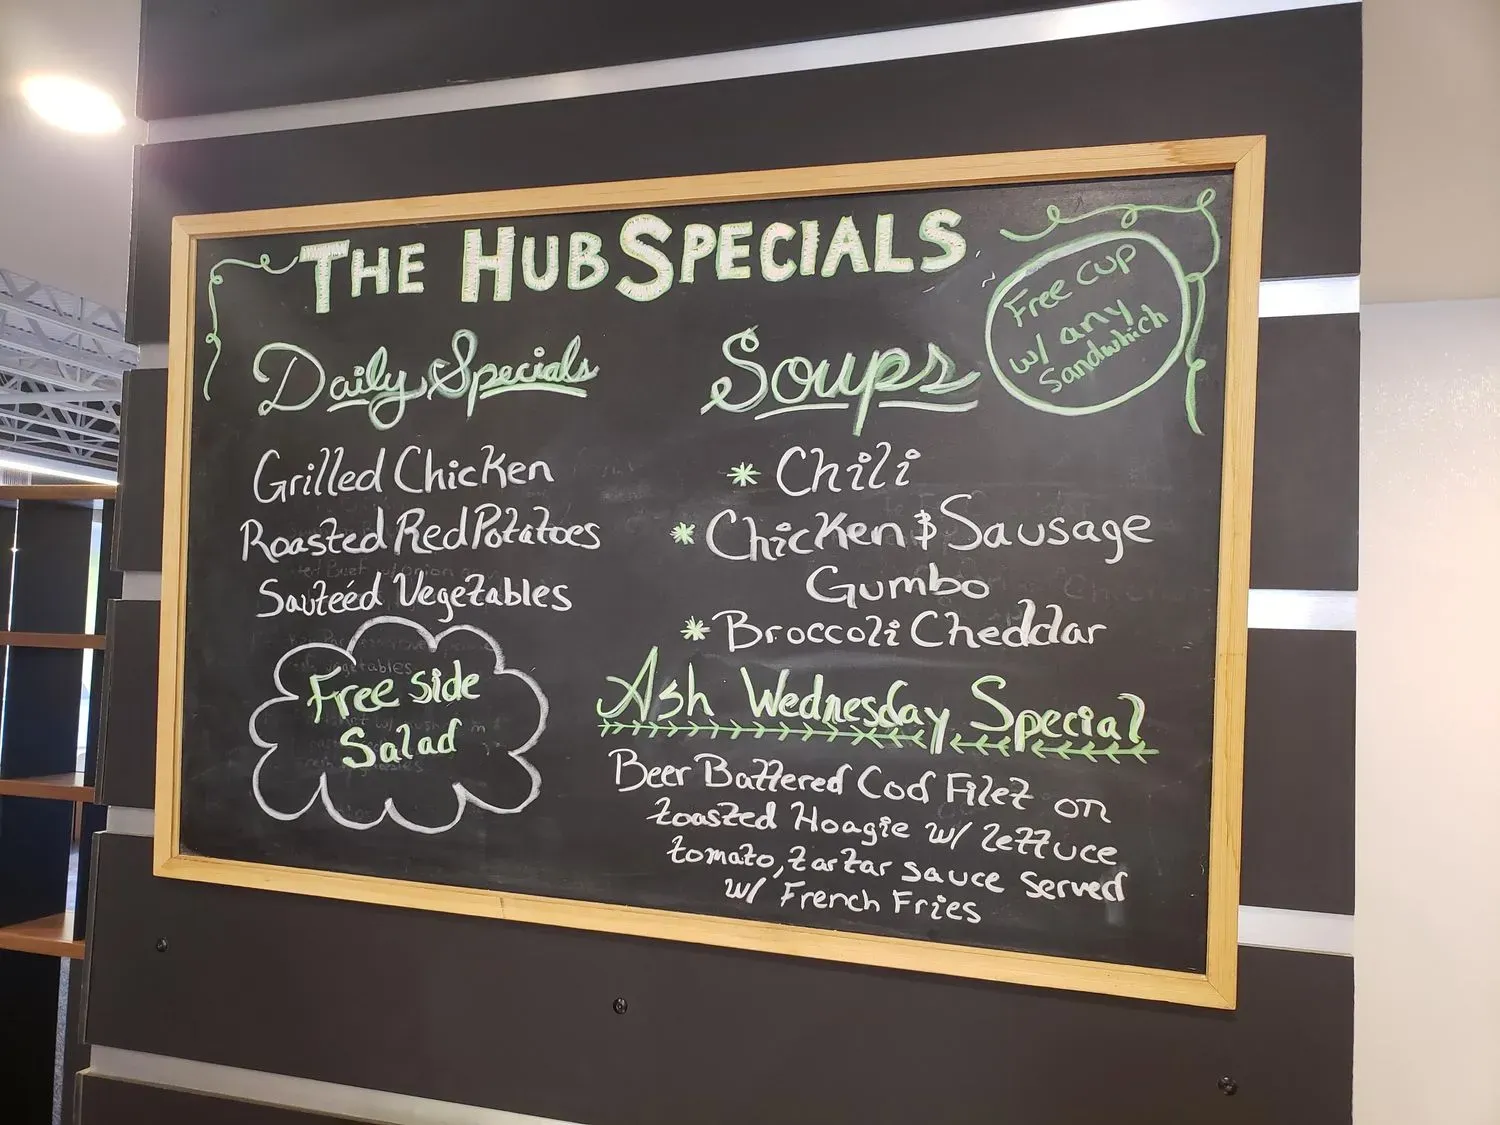 THE HUB SPECIALS
Daily Specials
Grilled Chicken
Roasted Red Potatoes
Sauteéd Vegetables
Free Side
Salad
Soups
Free cup
w/ any
Sandwhich
* Chili
* Chicken & Sausage
Gumbo
* Broccoli Cheddar
Ash Wednesday Special
Beer Battered Cod Filet on
toasted Hoagie w/ lettuce
tomato, tartar sauce served
w/ French Fries